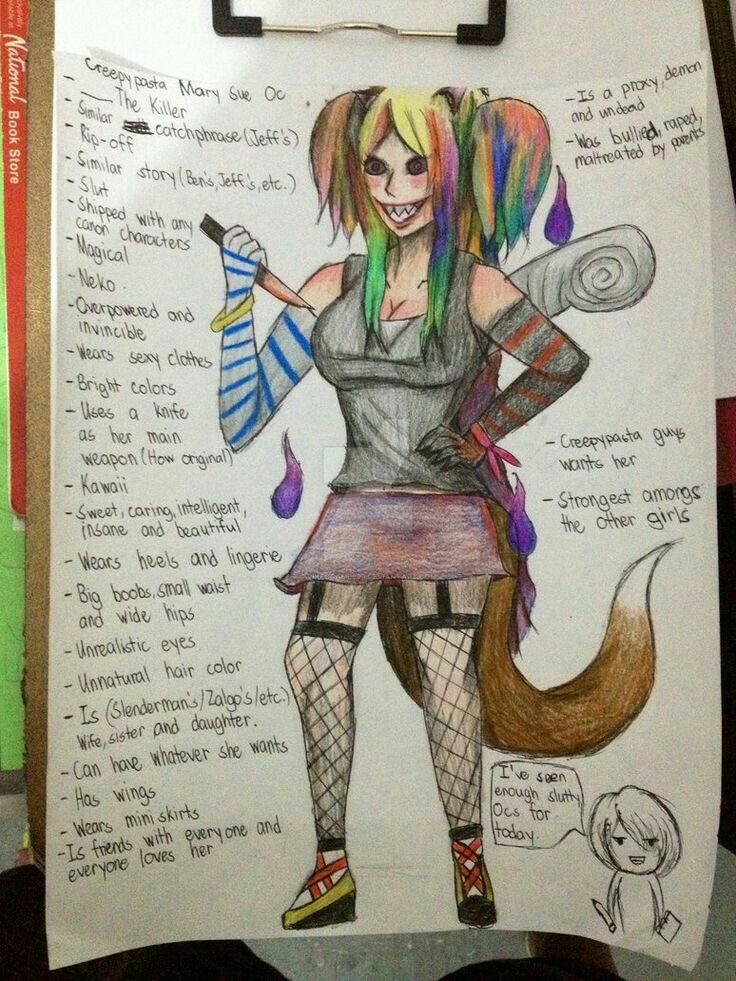 National
Book Store
Creepypasta Mary Sue Oc
- ___ The Killer
- Similar catchphrase (Jeff's)
- Rip-off
- Similar story (Ben's, Jeff's, etc.)
- Slut
- Shipped with any
canon characters
- Magical
- Neko.
- Overpowered and
invincible
- Wears sexy clothes
- Bright colors
- Uses a knife
as her main
weapon (How original)
- Kawaii
- Sweet, caring, intelligent,
insane and beautiful
- Wears heels and lingerie
- Big boobs, small waist
and wide hips
- Unrealistic eyes
- Unnatural hair color
- Is (Slenderman's/Zalgo's/etc.)
wife, sister and daughter.
- Can have whatever she wants
- Has wings
- Wears mini skirts
- Is friends with everyone and
everyone loves her
- Is a proxy, demon
and undead
- Was bullied, raped,
maltreated by parents
- Creepypasta guys
wants her
- Strongest amongs
the other girls
I've seen
enough slutty
Ocs for
today.